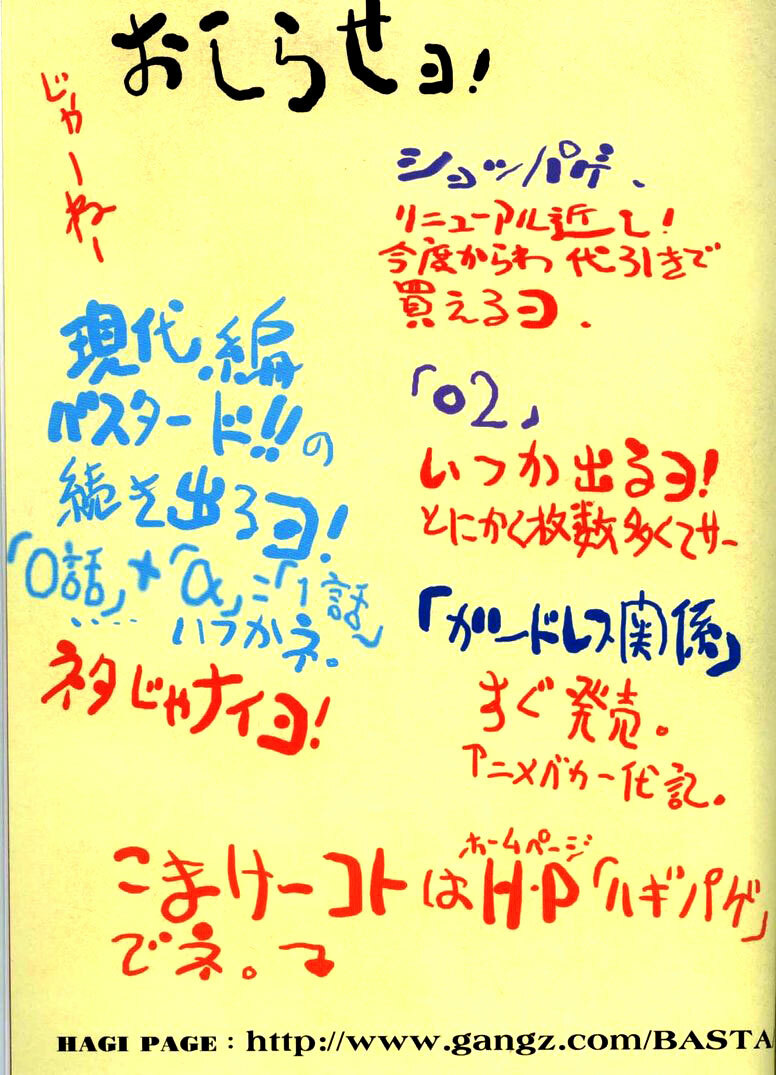 おしらせヨ!
ショッパゲ、
リニューアル近し!
今度からわ 代引きで
買えるヨ.
「02」
いつか出るヨ!
とにかく枚数多くてサー
「ガードレス関係」
すぐ発売。
アニメバカ一代記。
じゃーねー
現代編
バスタード!!の
続き出るヨ!
「0話」+「α」=「1話」
..... いつかネ。
ネタじゃナイヨ!
こまけーコトは H・P「ハギパゲ」
ホームページ
でネ。
HAGI PAGE : http://www.gangz.com/BASTA